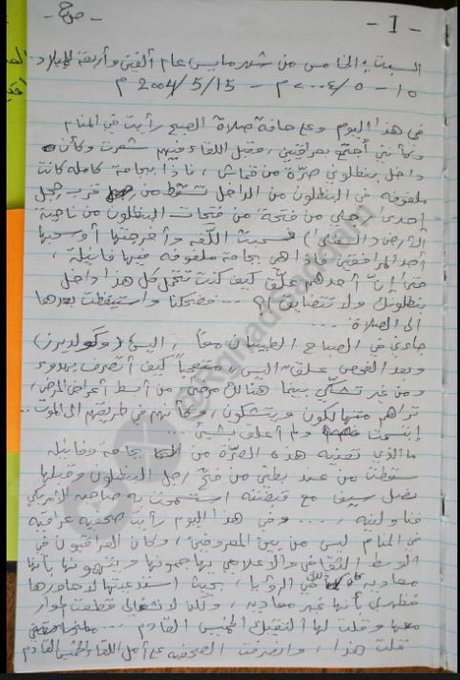 - 1 -
السبت الخامس من شهر مايس عام ألفين وأربعة للميلاد
١٥ - ٥ / ٢٠٠٤ م - 2004/5/15 م
في هذا اليوم وعلى حافة صلاة الصبح رأيت في المنام
وكأنني أجتمع بعراقيين، وقبل اللقاء فيهم شعرت وكأن
داخل بنطلوني صرّة من قماش، فإذا بجامة كاملة كانت
ملفوفة في البنطلون من الداخل تسقط من قرب رجل
إحدى رجلي من فتحة من فتحات البنطلون من ناحية
الأرض فسحبت اللفة وأخرجتها أو سحبها
أحد المرافقين فإذا هي بجامة ملفوفة فيها فانيلة،
حتى إن أحدهم علّق كيف كنت تتحمل كل هذا داخل
بنطلونك ولا تتضايق؟!... فضحكنا واستيقظت بعدها
الى الصلاة ...
جاءني في الصباح الطبيبان معاً،
وبعد الفحص علّق متعجباً كيف أتصرف بهدوء
ومن غير تشكّي بينما هنالك من أبسط أعراض المرض،
تراهم متهالكون ويتشكون، وكأنهم في طريقهم الى الموت...
إبتسمت ولم أعلق بشيء...
ما الذي تعنيه هذه الصرّة من بجامة وفانيله
سقطت من عند بطني من فتح رجل البنطلون وقبلها
نصل سيف مع قبضته استلمت به صاحبه الأمريكي
... وفي هذا اليوم رأيت صحفية عراقية
في المنام ليس من بين المعروفين، وكان العراقيون في
الوسط الثقافي والاعلامي يهاجمونها وينعتونها بأنها
معادية في الرؤيا، بحيث استدعيتها لأحاورها
فتظهر لي بأنها غير معادية، ولكن لانشغالي قطعت الحوار
معها وقلت لها ألتقيك الخميس القادم ...
قلت هذا، وانصرفت الصحفية على أمل اللقاء الخميس القادم